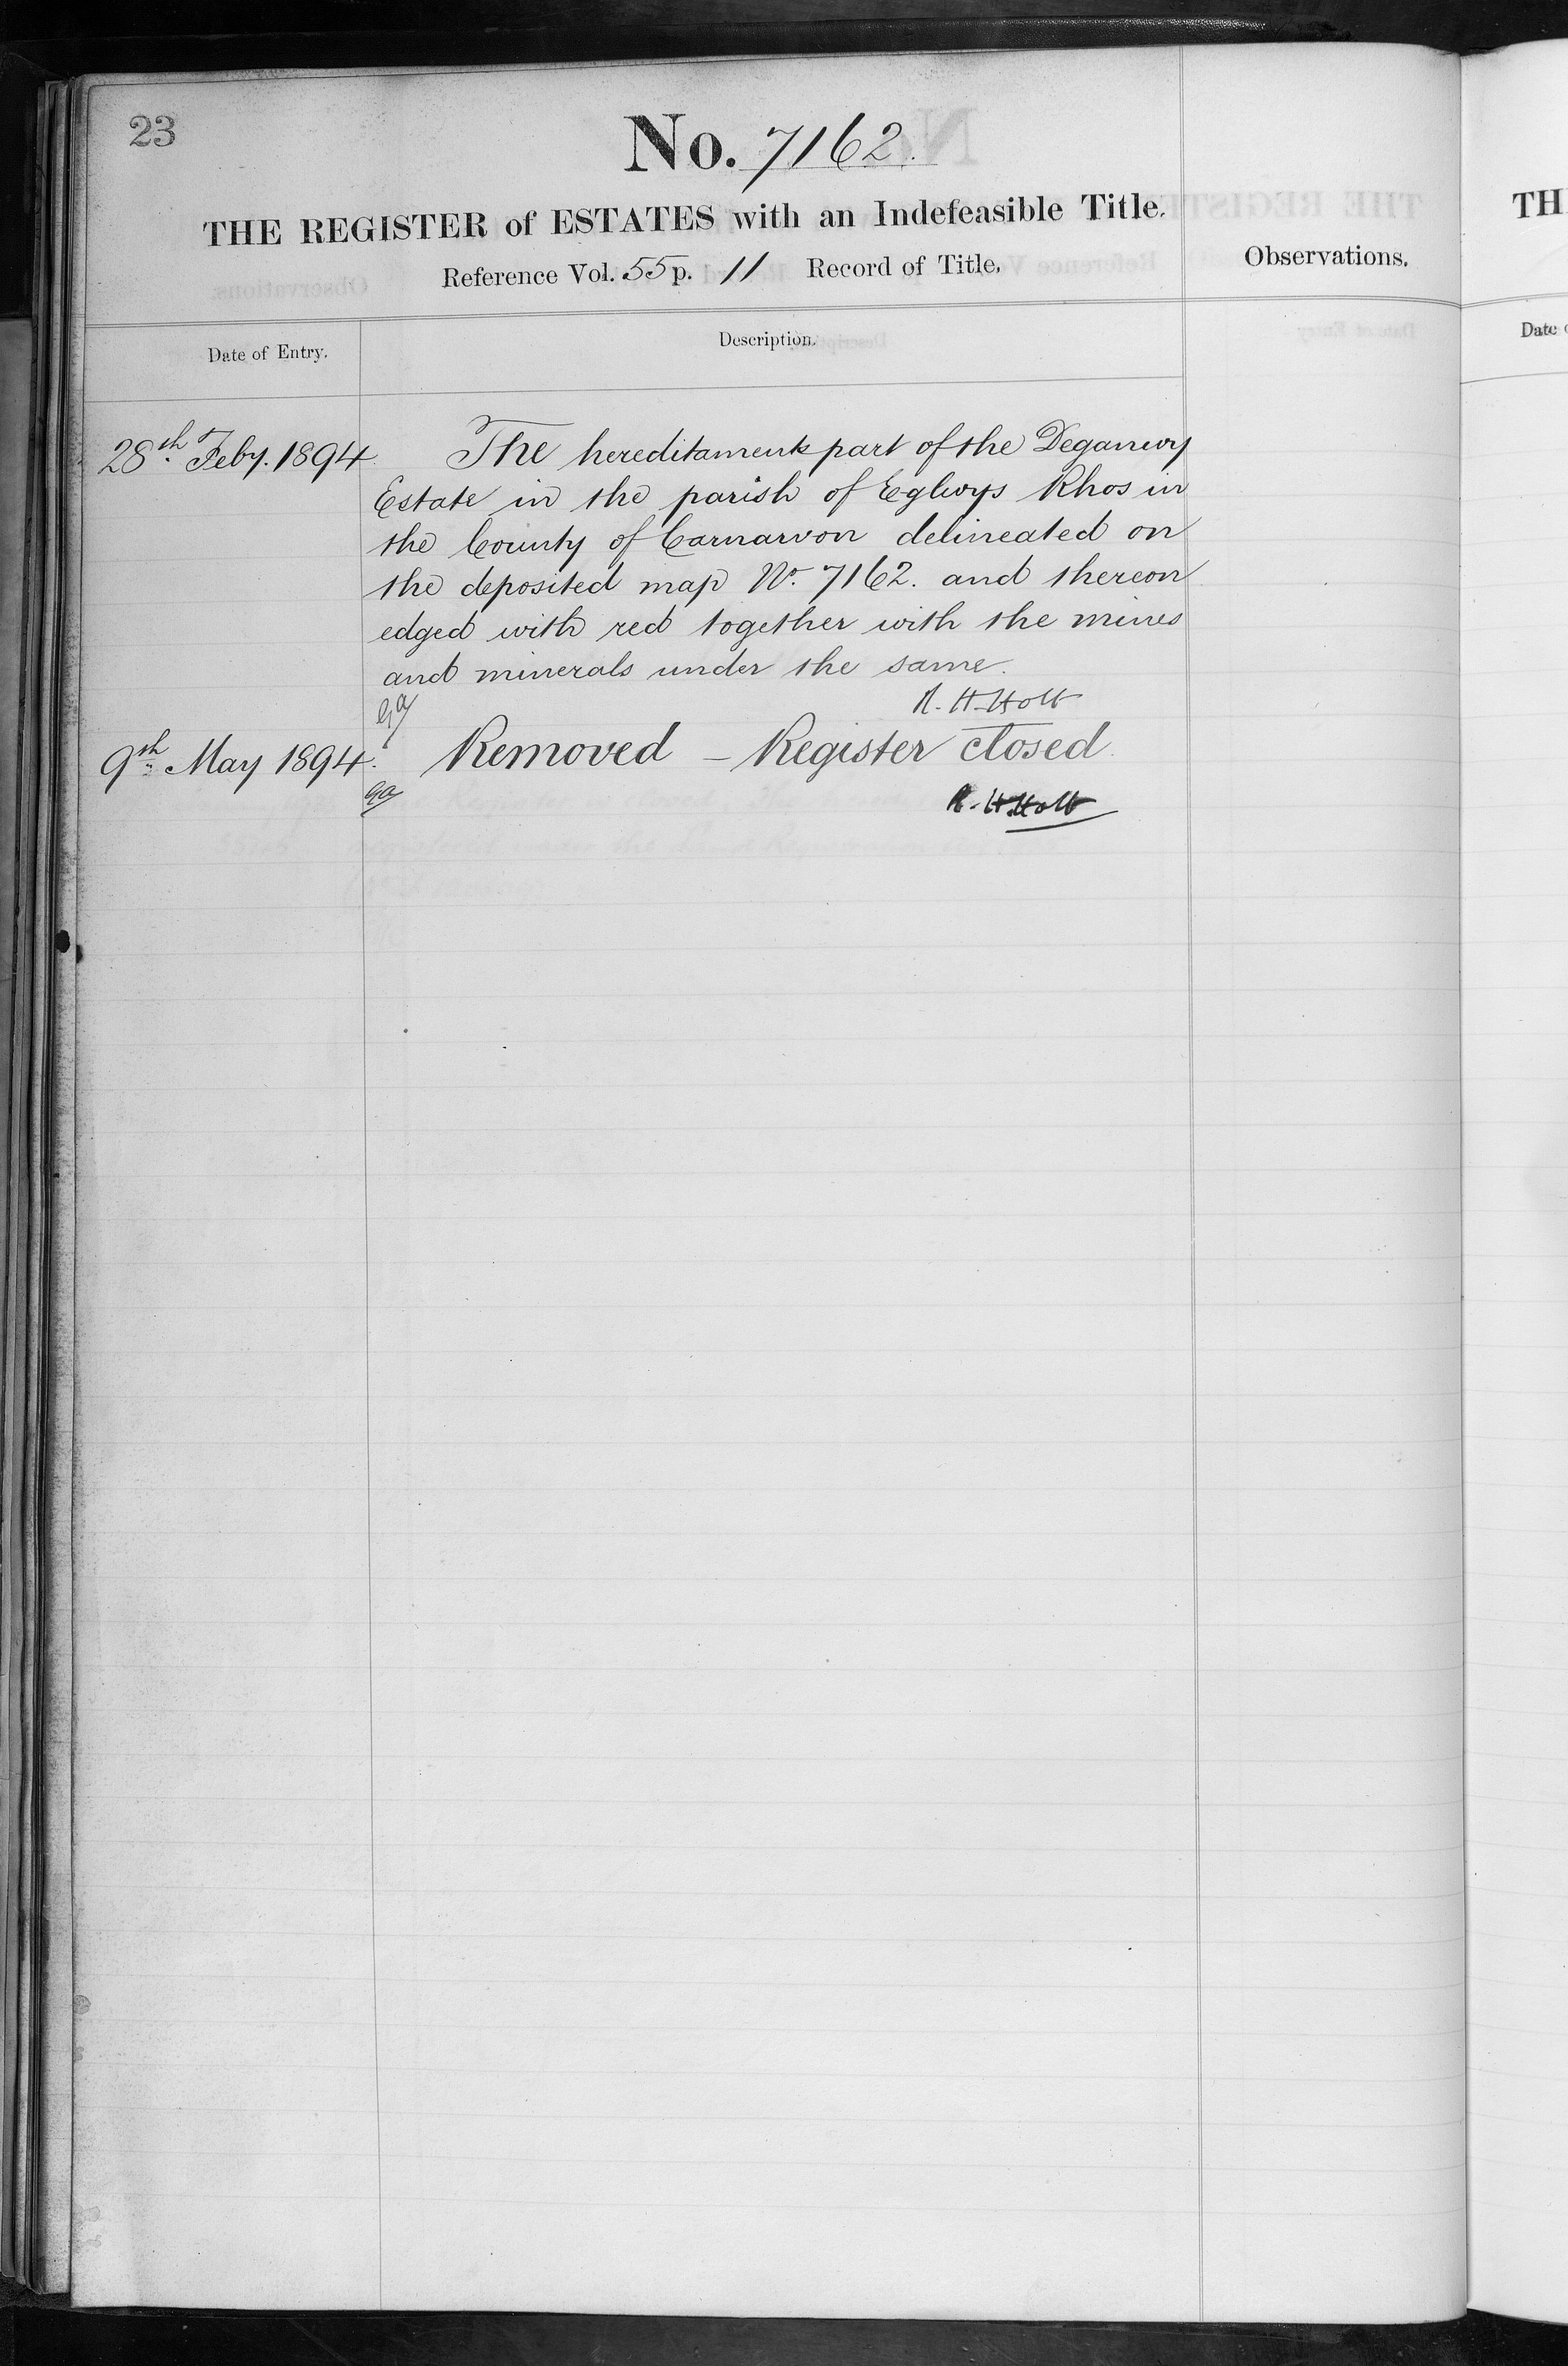 23
No. 7162.
THE REGISTER of ESTATES with an Indefeasible Title.
Reference Vol. 55 p. 11 Record of Title.
Observations.
Date of Entry.
Description.
28th Feby. 1894
The hereditaments part of the Deganwy
Estate in the parish of Eglwys Rhos in
the County of Carnarvon delineated on
the deposited map No. 7162. and thereon
edged with red together with the mines
and minerals under the same.
R. H. Holt
9th May 1894.
Removed – Register closed
R. H. Holt
TH
Date